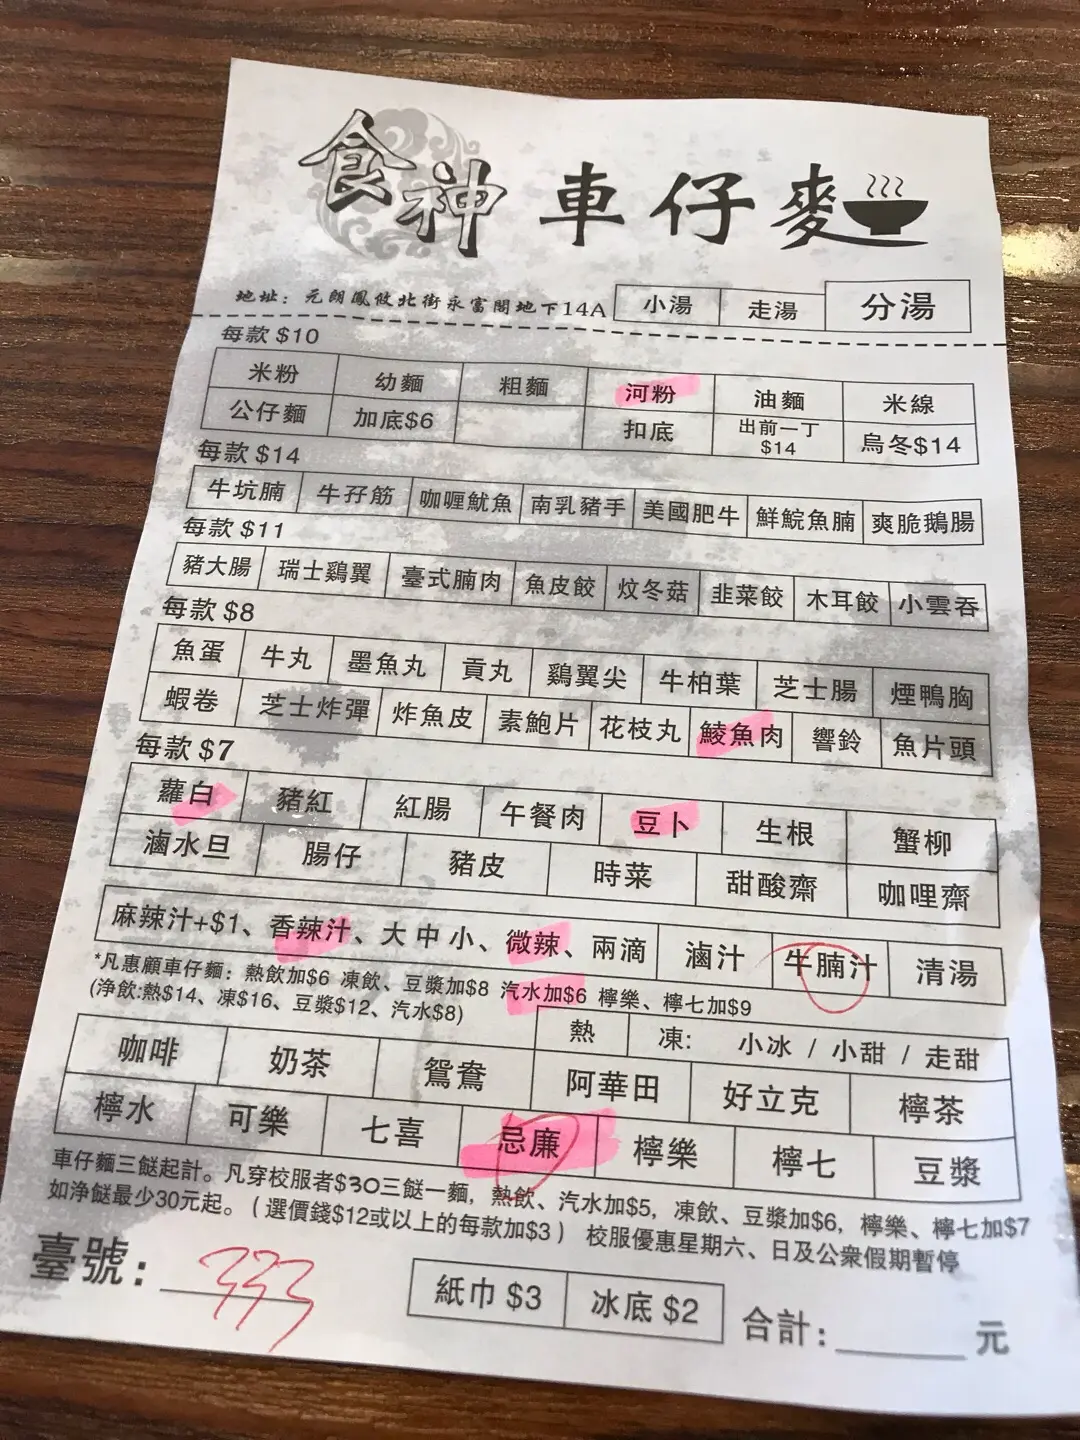 食神車仔麥
地址：元朗鳳攸北街永富閣地下14A 小湯 走湯 分湯
每款 $10
米粉 幼麵 粗麵 河粉 油麵 米線
公仔麵 加底$6 扣底 出前一丁 $14 烏冬$14
每款 $14
牛坑腩 牛孖筋 咖喱魷魚 南乳豬手 美國肥牛 鮮鯇魚腩 爽脆鵝腸
每款 $11
豬大腸 瑞士鷄翼 臺式腩肉 魚皮餃 炆冬菇 韭菜餃 木耳餃 小雲吞
每款 $8
魚蛋 牛丸 墨魚丸 貢丸 鷄翼尖 牛柏葉 芝士腸 煙鴨胸
蝦卷 芝士炸彈 炸魚皮 素鮑片 花枝丸 鯪魚肉 響鈴 魚片頭
每款 $7
蘿白 豬紅 紅腸 午餐肉 豆卜 生根 蟹柳
滷水旦 腸仔 豬皮 時菜 甜酸齋 咖哩齋
麻辣汁+$1、香辣汁、大 中 小、微辣、兩滴 滷汁 牛腩汁 清湯
*凡惠顧車仔麵：熱飲加$6 凍飲、豆漿加$8 汽水加$6 檸樂、檸七加$9
(淨飲:熱$14、凍$16、豆漿$12、汽水$8)
熱 凍: 小冰 / 小甜 / 走甜
咖啡 奶茶 鴛鴦 阿華田 好立克 檸茶
檸水 可樂 七喜 忌廉 檸樂 檸七 豆漿
車仔麵三餸起計。凡穿校服者$30三餸一麵，熱飲、汽水加$5，凍飲、豆漿加$6，檸樂、檸七加$7
如淨餸最少30元起。（選價錢$12或以上的每款加$3） 校服優惠星期六、日及公衆假期暫停
臺號：333 紙巾 $3 冰底 $2 合計：______ 元